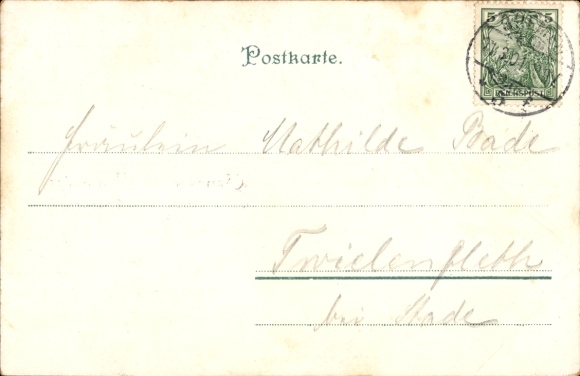 5 5
REICHSPOST
Postkarte.
Fräulein Mathilde Bade
Twielenfleth
bei Stade